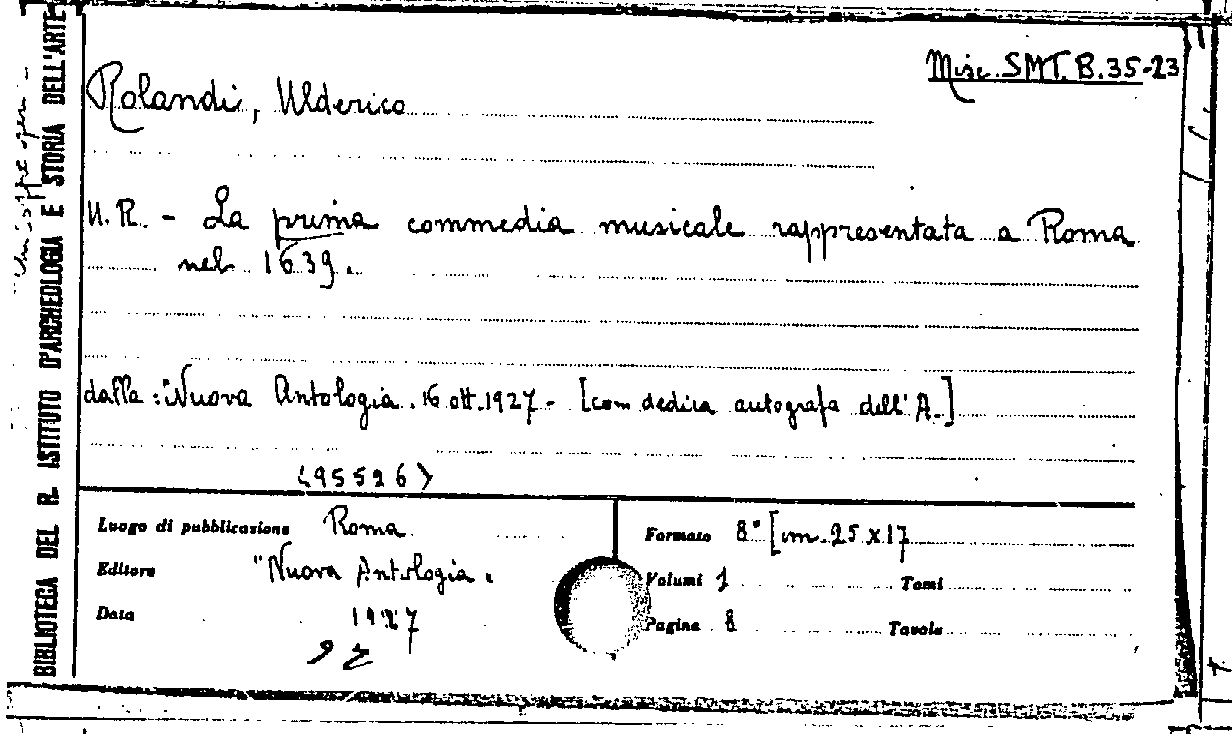 Misc. SMT. B. 35-23
Rolandi, Ulderico
U. R. - La prima commedia musicale rappresentata a Roma
nel 1639.
dalla: "Nuova Antologia. 16 ott. 1927 - [com dedica autografa dell' A.]
(95526)
Luogo di pubblicazione Roma
Editore "Nuova Antologia"
Data 1927
Formato 8° [cm. 25 x 17
Volumi 1 Tomi
Pagine 8 Tavole
BIBLIOTECA DEL R. ISTITUTO D'ARCHEOLOGIA E STORIA DELL'ARTE